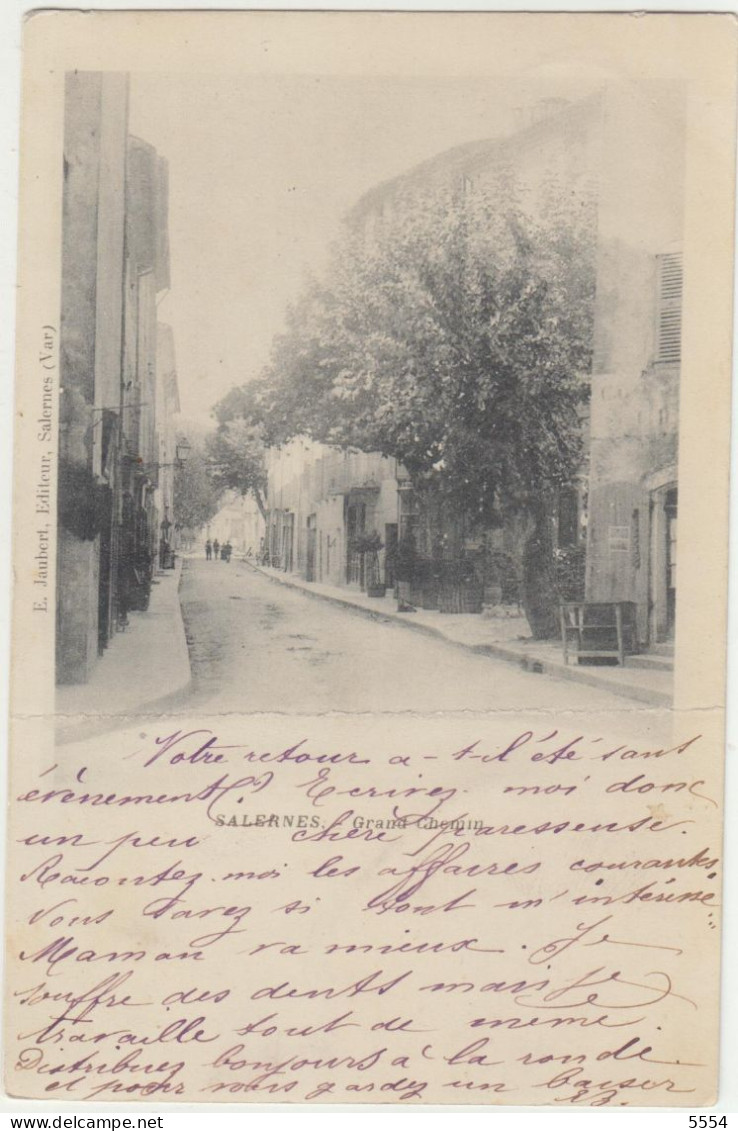 E. Jaubert, Editeur, Salernes (Var)
Votre retour a-t-il été sans
évènements(?) Ecrivez moi donc
SALERNES. Grand Chemin
un peu chère paresseuse.
Racontez-moi les affaires courantes
Vous savez si tout m'intéresse
Maman va mieux. Je
souffre des dents mais je
travaille tout de même.
Distribuez bonjours à la ronde
et pour vous gardez un baiser
5554 Delcampe.net